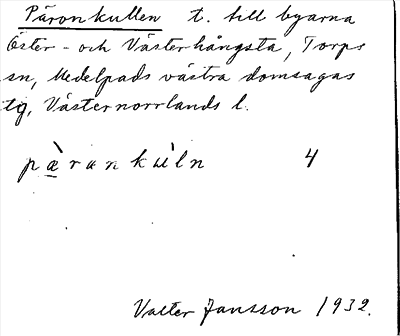 Päronkullen t. till byarna
Öster- och Västerhångsta, Torps
sn, Medelpads västra domsagas
tg, Västernorrlands l.
pæ̀ronkùln 4
Valter Jansson 1932.